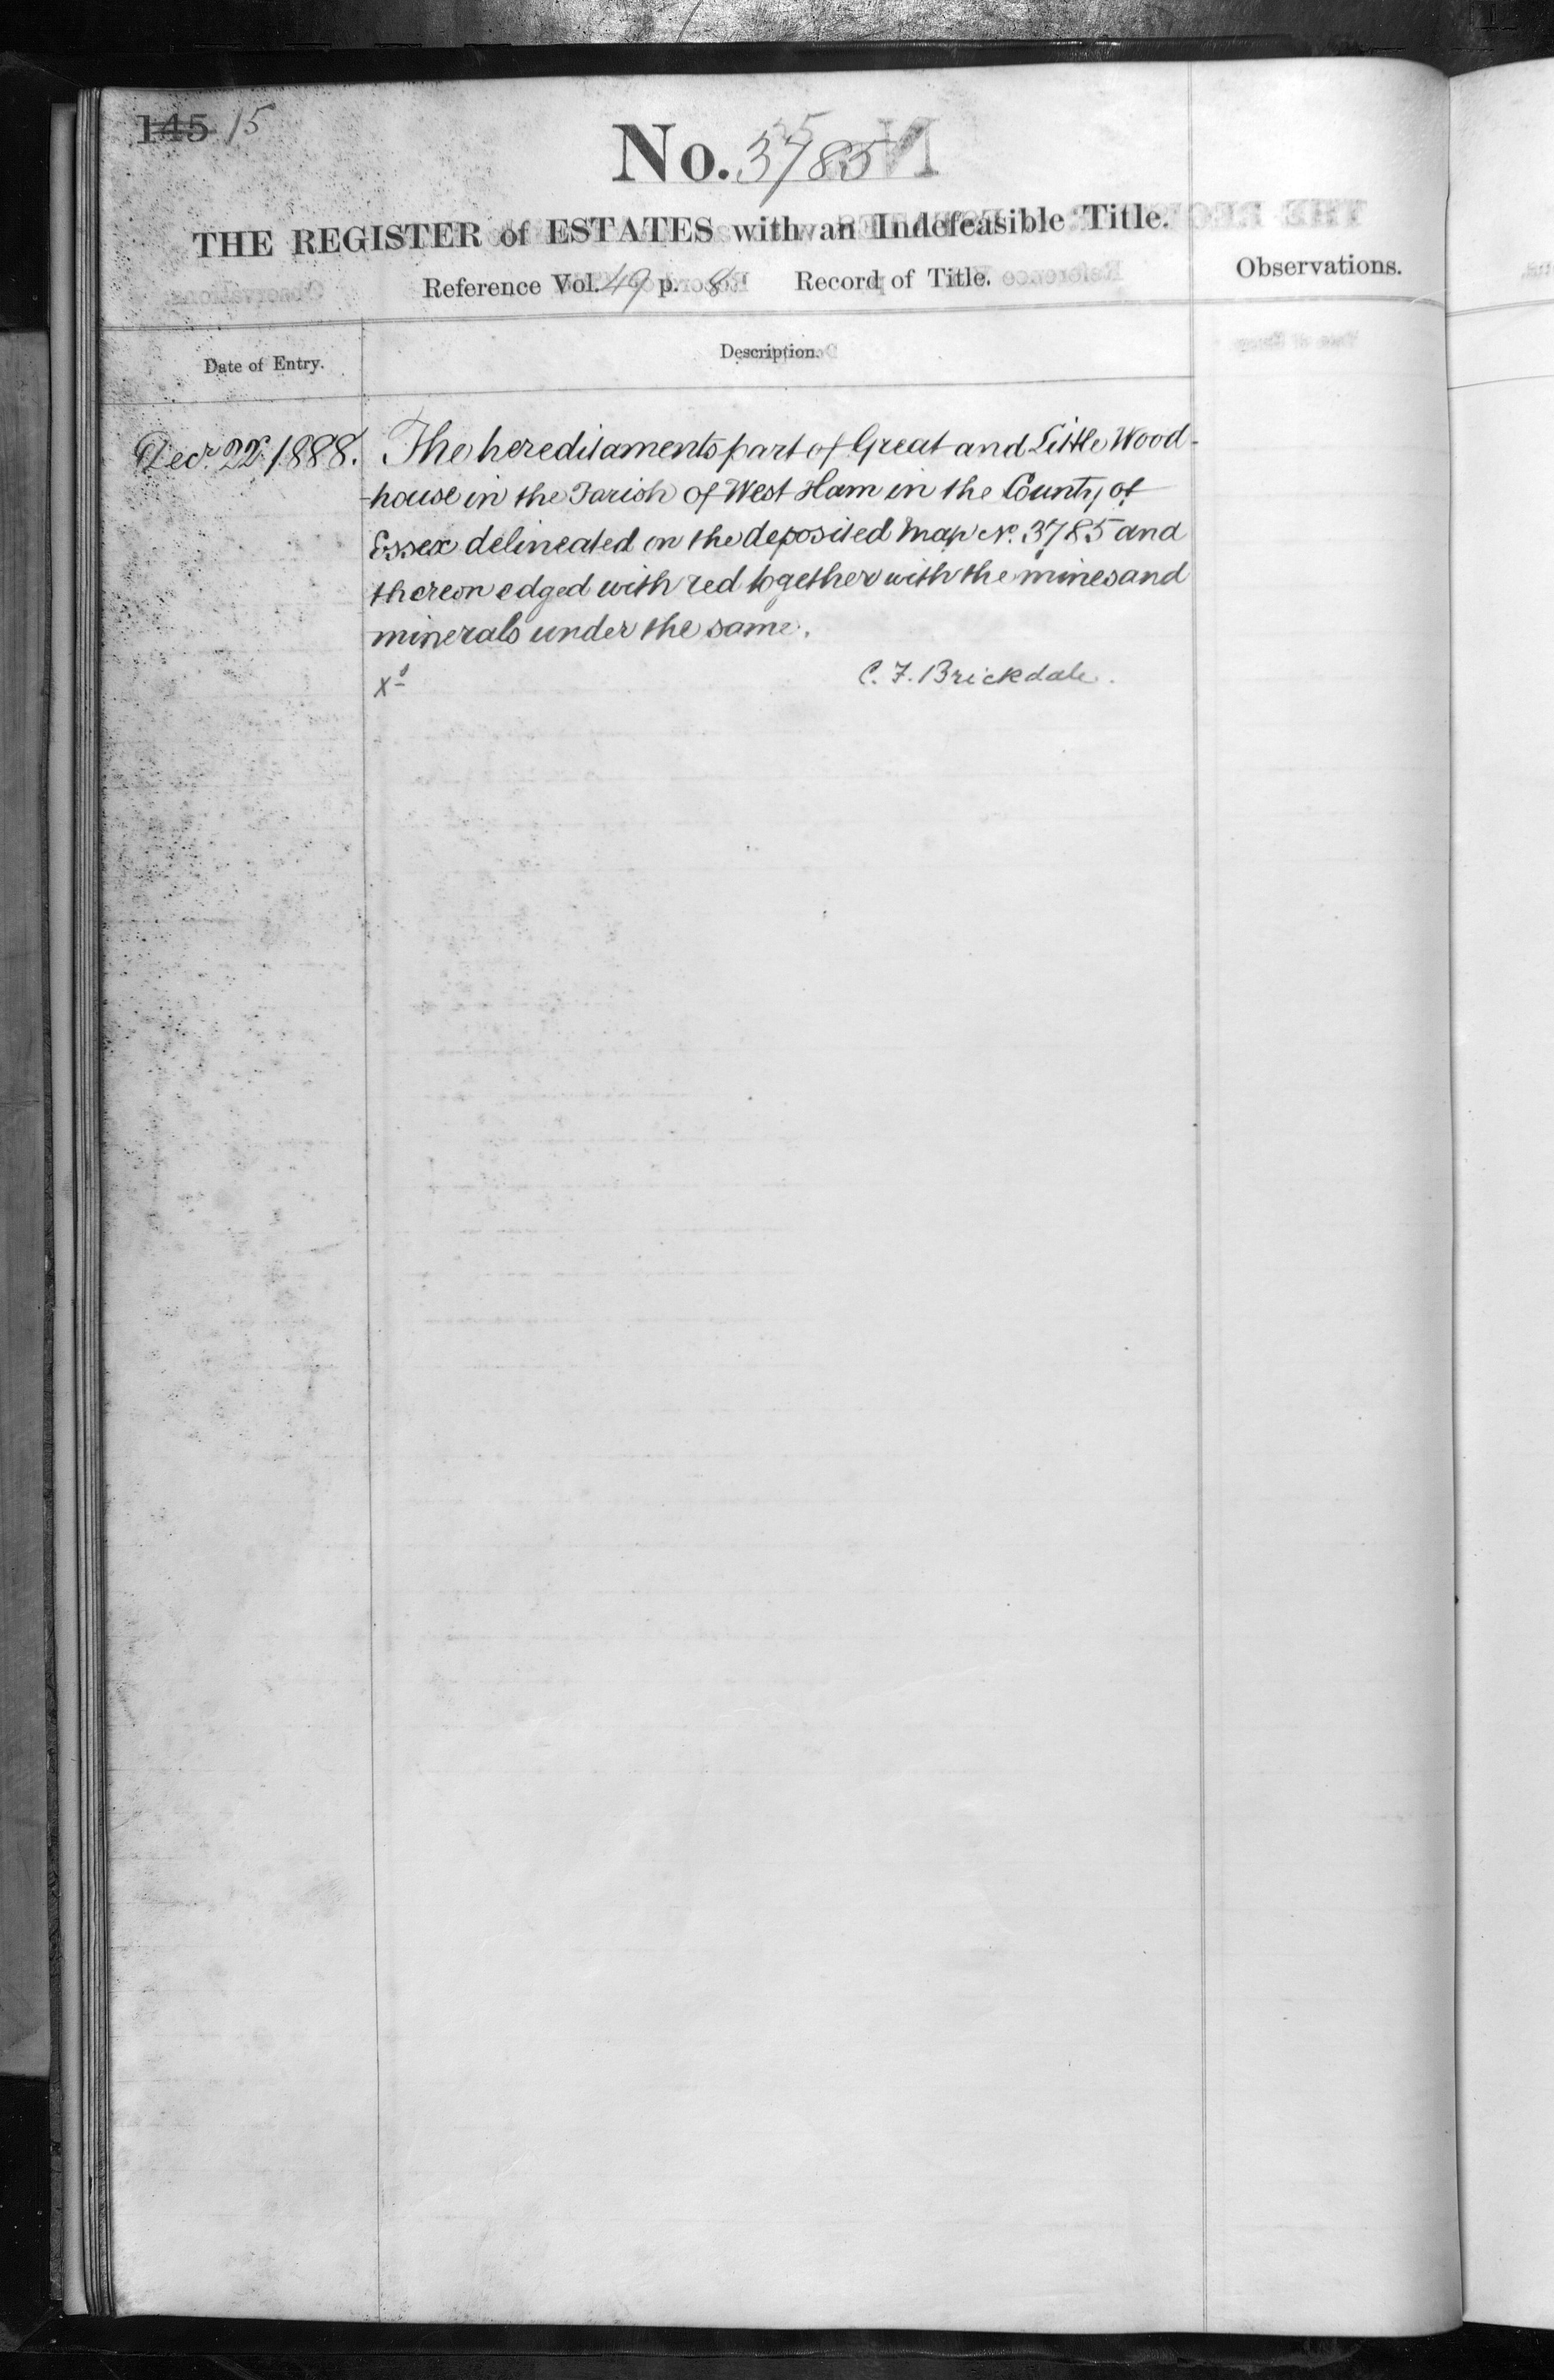 145 15
No. 3785
THE REGISTER of ESTATES with an Indefeasible Title.
Reference Vol. 49 p. 8 Record of Title.
Observations.
Date of Entry.
Description.
Decr. 22. 1888.
The hereditaments part of Great and Little Wood-
-house in the Parish of West Ham in the County of
Essex delineated on the deposited Map No. 3785 and
thereon edged with red together with the mines and
minerals under the same.
C. F. Brickdale.